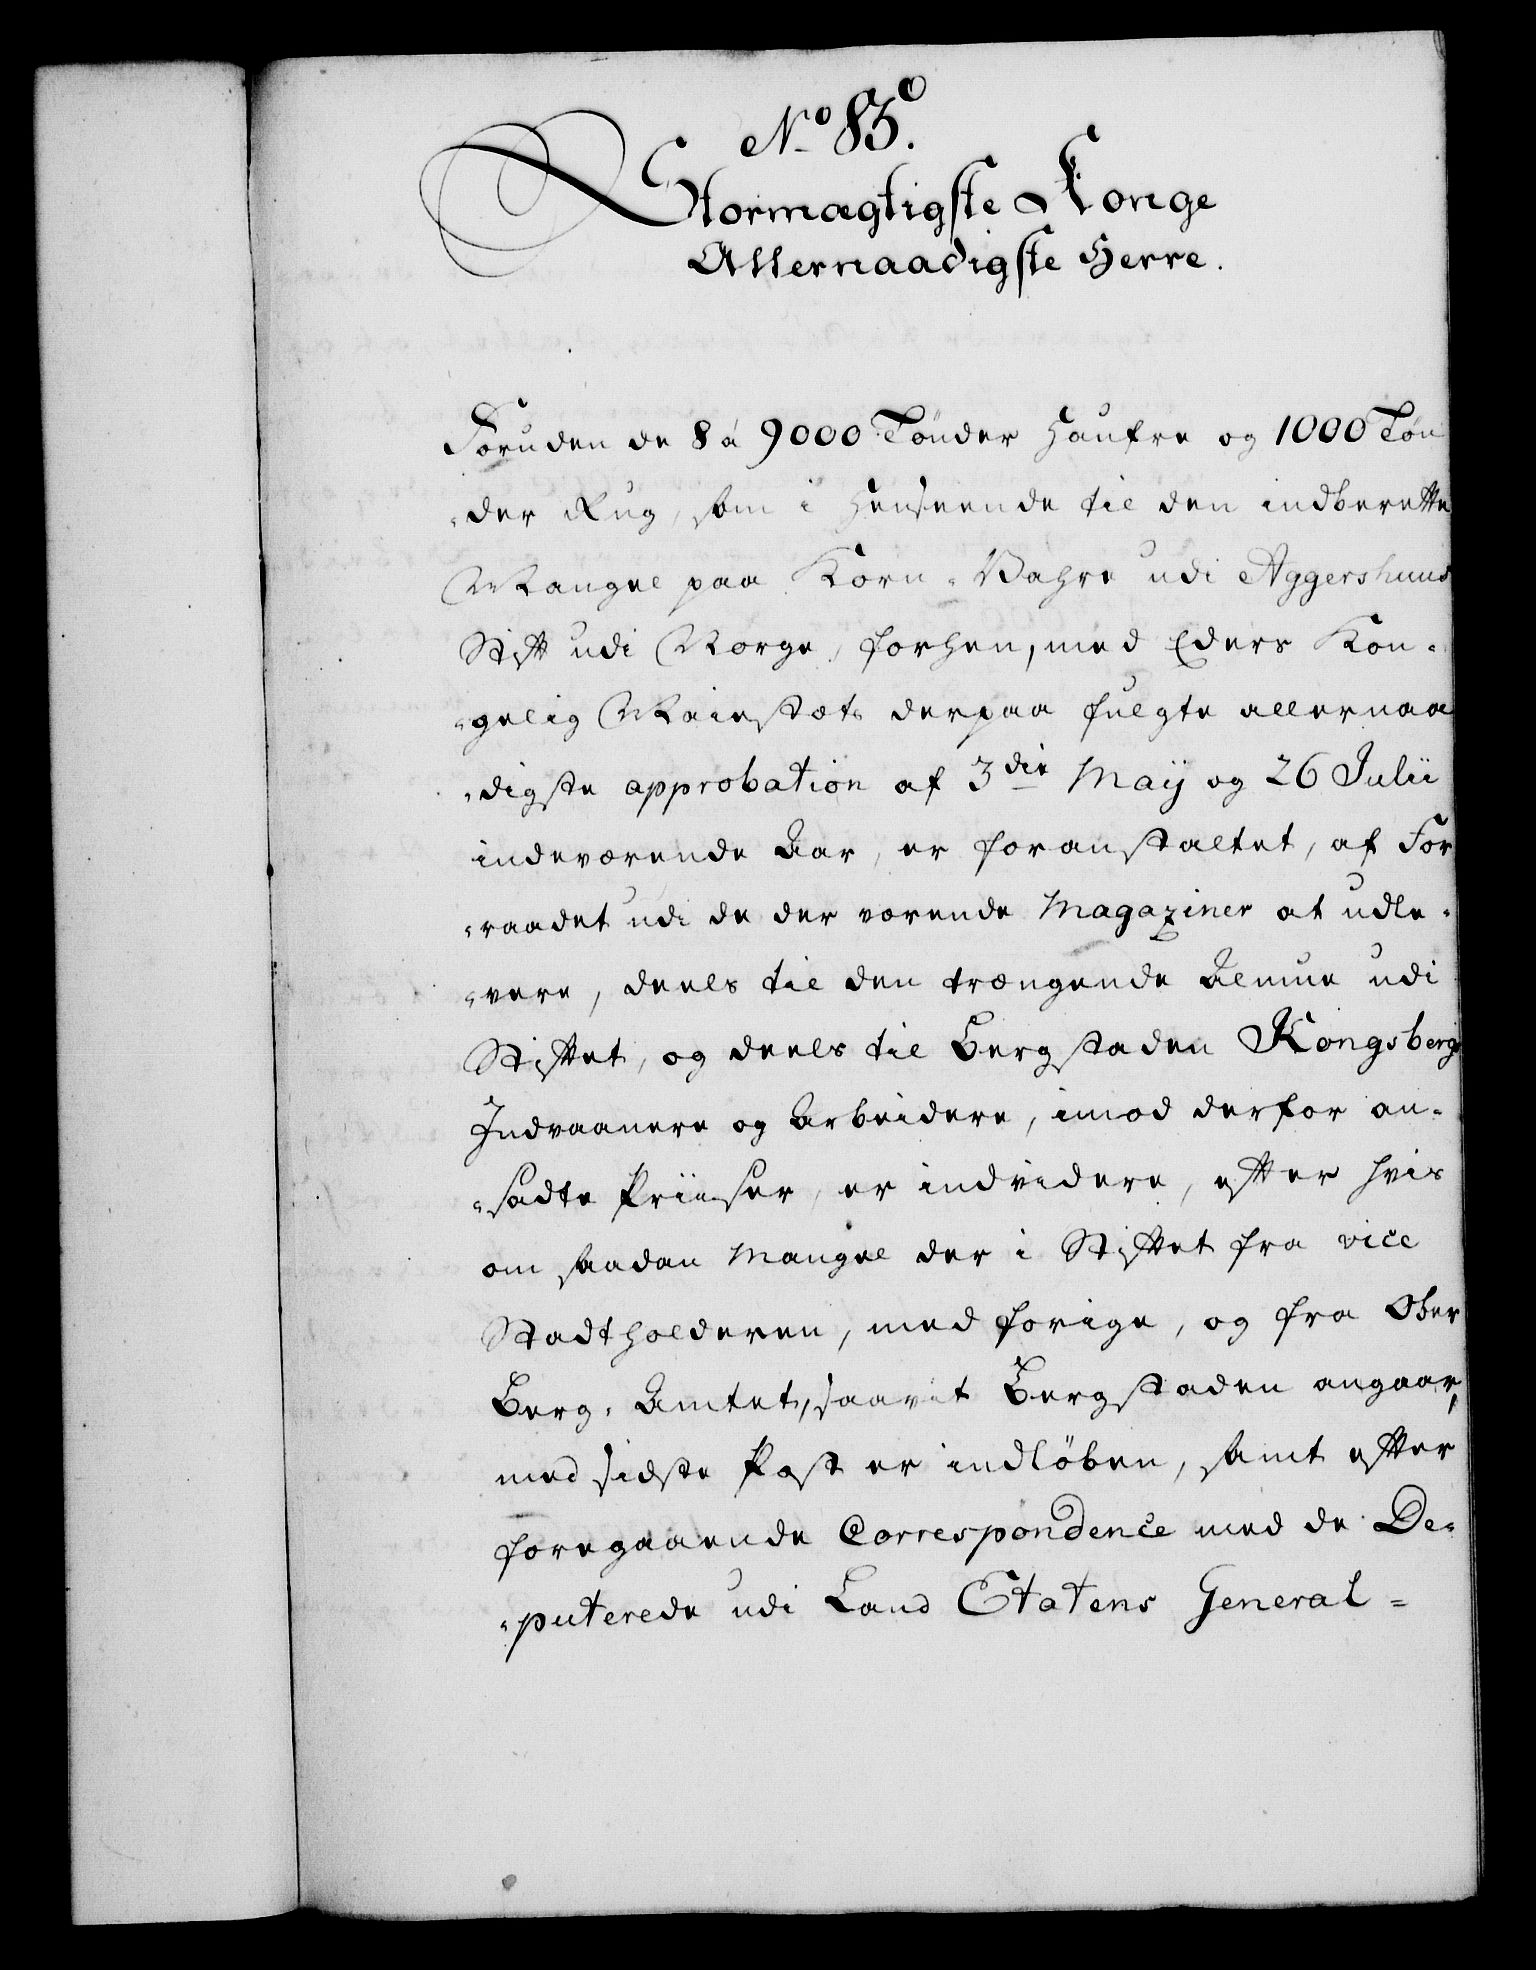 No 83.
Stormægtigste Konge
Allernaadigste Herre.
Foruden de 8 á 9000 Tønder Haufre og 1000 Tøn
-der Rug, som i Henseende til den indberette
Mangel paa Korn-Vahre udi Aggershuus
Stift udi Norge, forhen, med Eders Kon-
-gelig Maiestæts derpaa fulgte allernaa
-digste approbation af 3die Maij og 26 Julii
indeværende Aar, er foranstaltet, af For
-raadet udi de der værende Magaziner at udle-
-vere, deels til den trængende Almue udi
Stiftet, og deels til Bergstaden Kongsbergs
Indvaanere og Arbeidere, imod derfor an-
-sadte Priiser, er indvidere, efter hvis
om saadan Mangel der i Stiftet fra vice
Stadtholderen, med forige, og fra Ober
Berg-Amtet, saavit Bergstaden angaar,
med sidste Post er indløben, samt efter
foregaaende Correspondence med de De-
-puterede udi Land Etatens General-